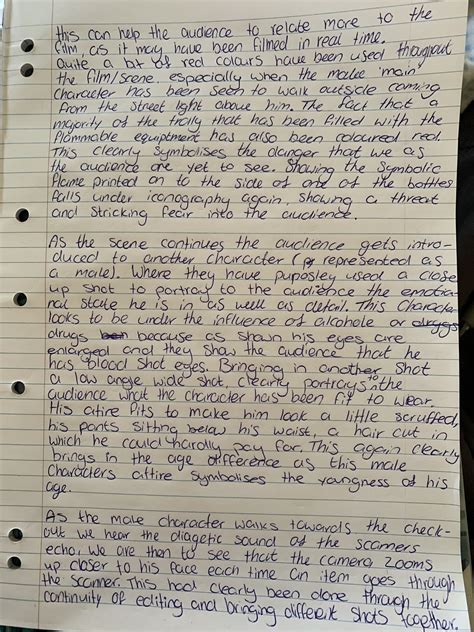 this can help the audience to relate more to the
film, as it may have been filmed in real time.
Quite a bit of red colours have been used throughout
the film/scene, especially when the male 'main'
character has been seen to walk outside coming
from the street light above him. The fact that a
majority of the trolly that has been filled with the
flammable equiptment has also been coloured red.
This clearly symbolises the danger that we as
the audience are yet to see. Showing the symbolic
flame printed on to the side of one of the bottles
falls under iconography again, showing a threat
and stricking fear into the audience.
As the scene continues the audience gets intro-
duced to another character (represented as
a male). Where they have puposley used a close
up shot to portray to the audience the emotio
nal state he is in as well as detail. This character
looks to be under the influence of alcohole or
drugs because as shown his eyes are
enlarged and they show the audience that he
has blood shot eyes. Bringing in another shot
a low angle wide shot, clearly portrays to the
audience what the character has been fit to wear.
His atire fits to make him look a little scruffed,
his pants sitting below his waist, a hair cut in
which he could hardly pay for. This again clearly
brings in the age difference as this male
characters attire symbolises the youngness of his
age.
As the male character walks towards the check-
out we hear the diagetic sound of the scamers
echo, we are then to see that the camera zooms
up closer to his face each time an item goes through
the scanner. This had clearly been done through the
continuity of editing and bringing different shots together.